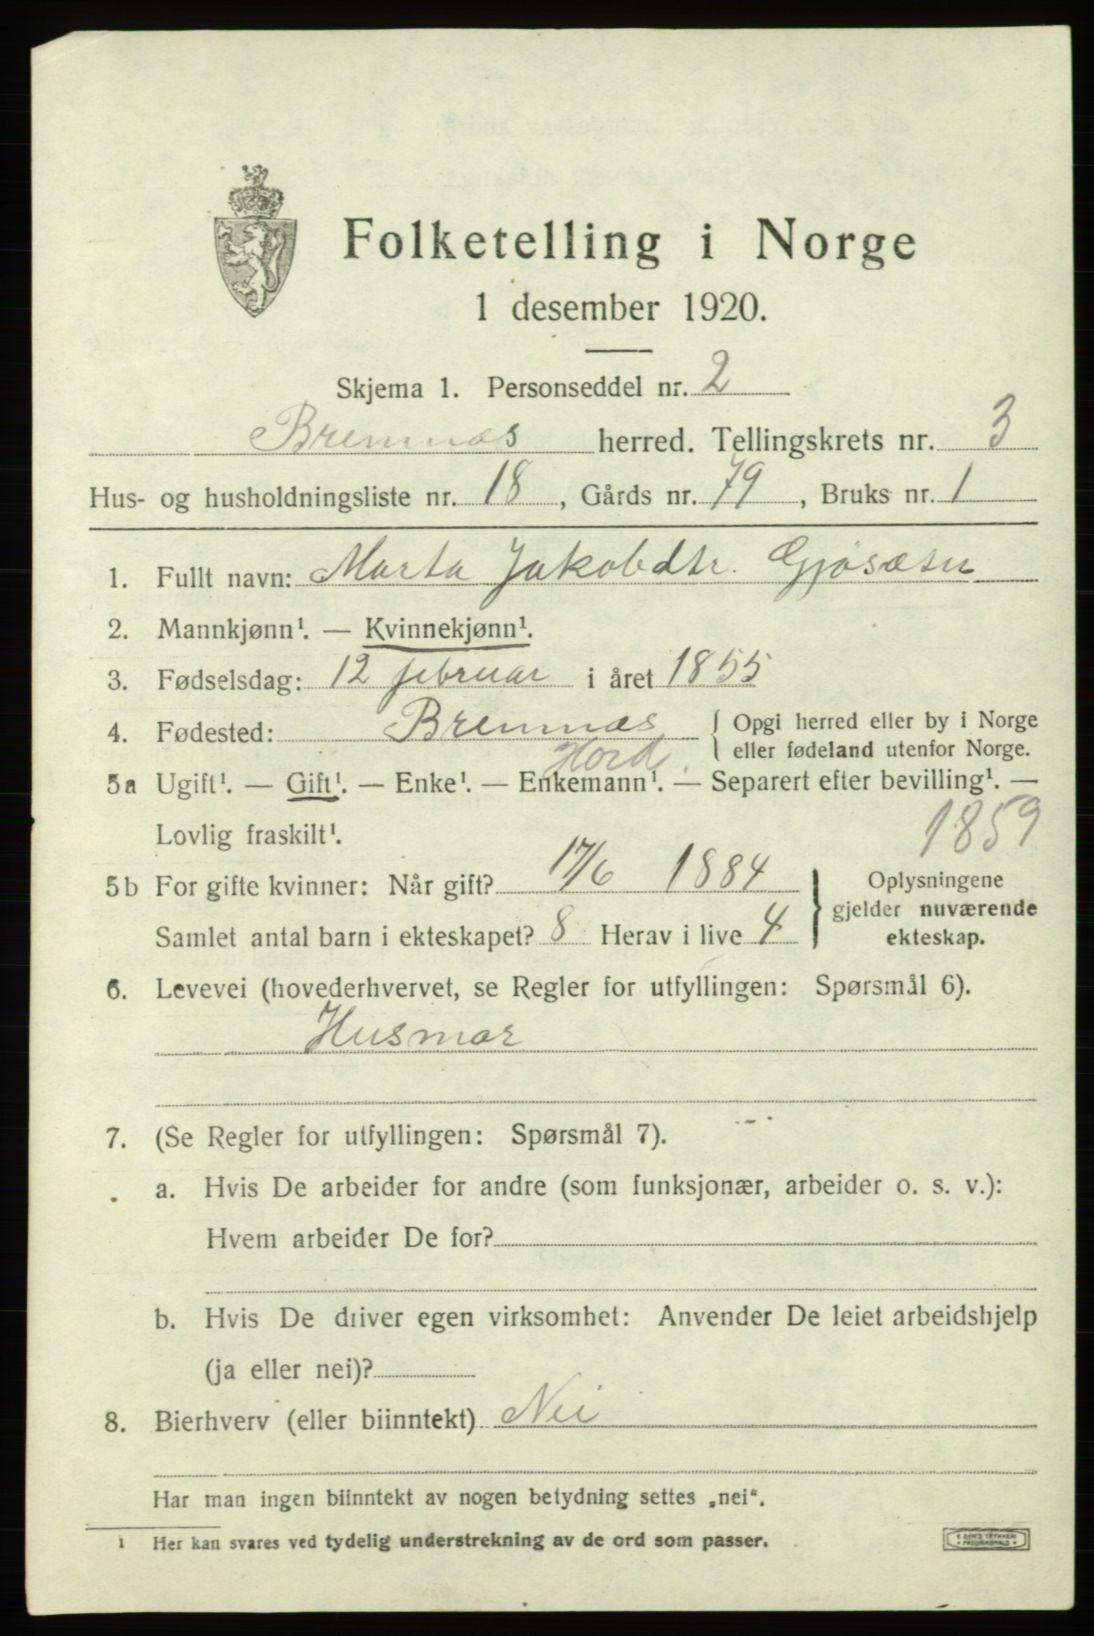 Folketelling i Norge
1 desember 1920.
Skjema 1. Personseddel nr. 2
Bremnæs herred. Tellingskrets nr. 3
Hus- og husholdningsliste nr. 18, Gårds nr. 79, Bruks nr. 1
1. Fullt navn: Marta Jakobdtr. Gjøsæter
2. Mannkjønn¹. — Kvinnekjønn¹.
3. Fødselsdag: 12 februar i året 1855
4. Fødested: Bremnæs { Opgi herred eller by i Norge
Hord. eller fødeland utenfor Norge.
5a Ugift¹. — Gift¹. — Enke¹. — Enkemann¹. — Separert efter bevilling¹. —
Lovlig fraskilt¹. 1859
5b For gifte kvinner: Når gift? 17/6 1884 } Oplysningene
gjelder nuværende
Samlet antal barn i ekteskapet? 8 Herav i live 4 ekteskap.
6. Levevei (hovederhvervet, se Regler for utfyllingen: Spørsmål 6).
Husmor
7. (Se Regler for utfyllingen: Spørsmål 7).
a. Hvis De arbeider for andre (som funksjonær, arbeider o. s. v.):
Hvem arbeider De for?
b. Hvis De driver egen virksomhet: Anvender De leiet arbeidshjelp
(ja eller nei)?
8. Bierhverv (eller biinntekt) Nei
Har man ingen biinntekt av nogen betydning settes „nei“.
1 Her kan svares ved tydelig understrekning av de ord som passer.